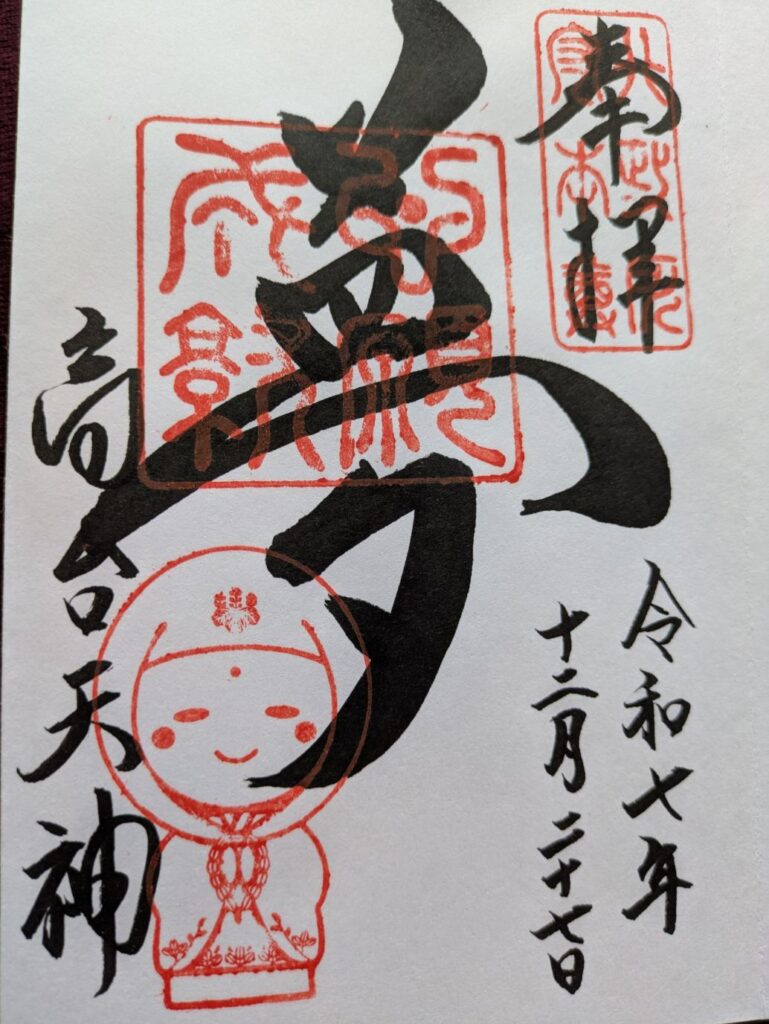 奉拝
令和七年
十二月二十七日
夢
願
成就
高台天神